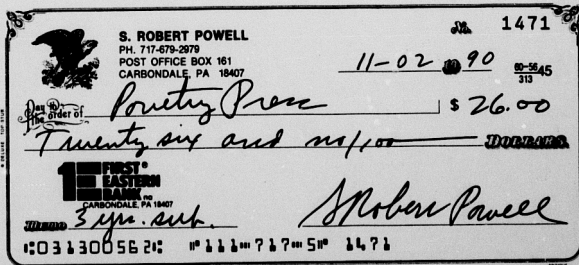 S. ROBERT POWELL
PH. 717-679-2979
POST OFFICE BOX 161
CARBONDALE, PA 18407
No. 1471
11-02 1990
60-56 45
313
Pay to the order of Poultry Press $ 26.00
Twenty six and no/100 DOLLARS
1 FIRST EASTERN BANK na
CARBONDALE, PA 18407
Memo 3 yrs. sub. S Robert Powell
⑆031300562⑆ ⑈111⑉717⑉5⑈ 1471
DELUXE TOP STUB